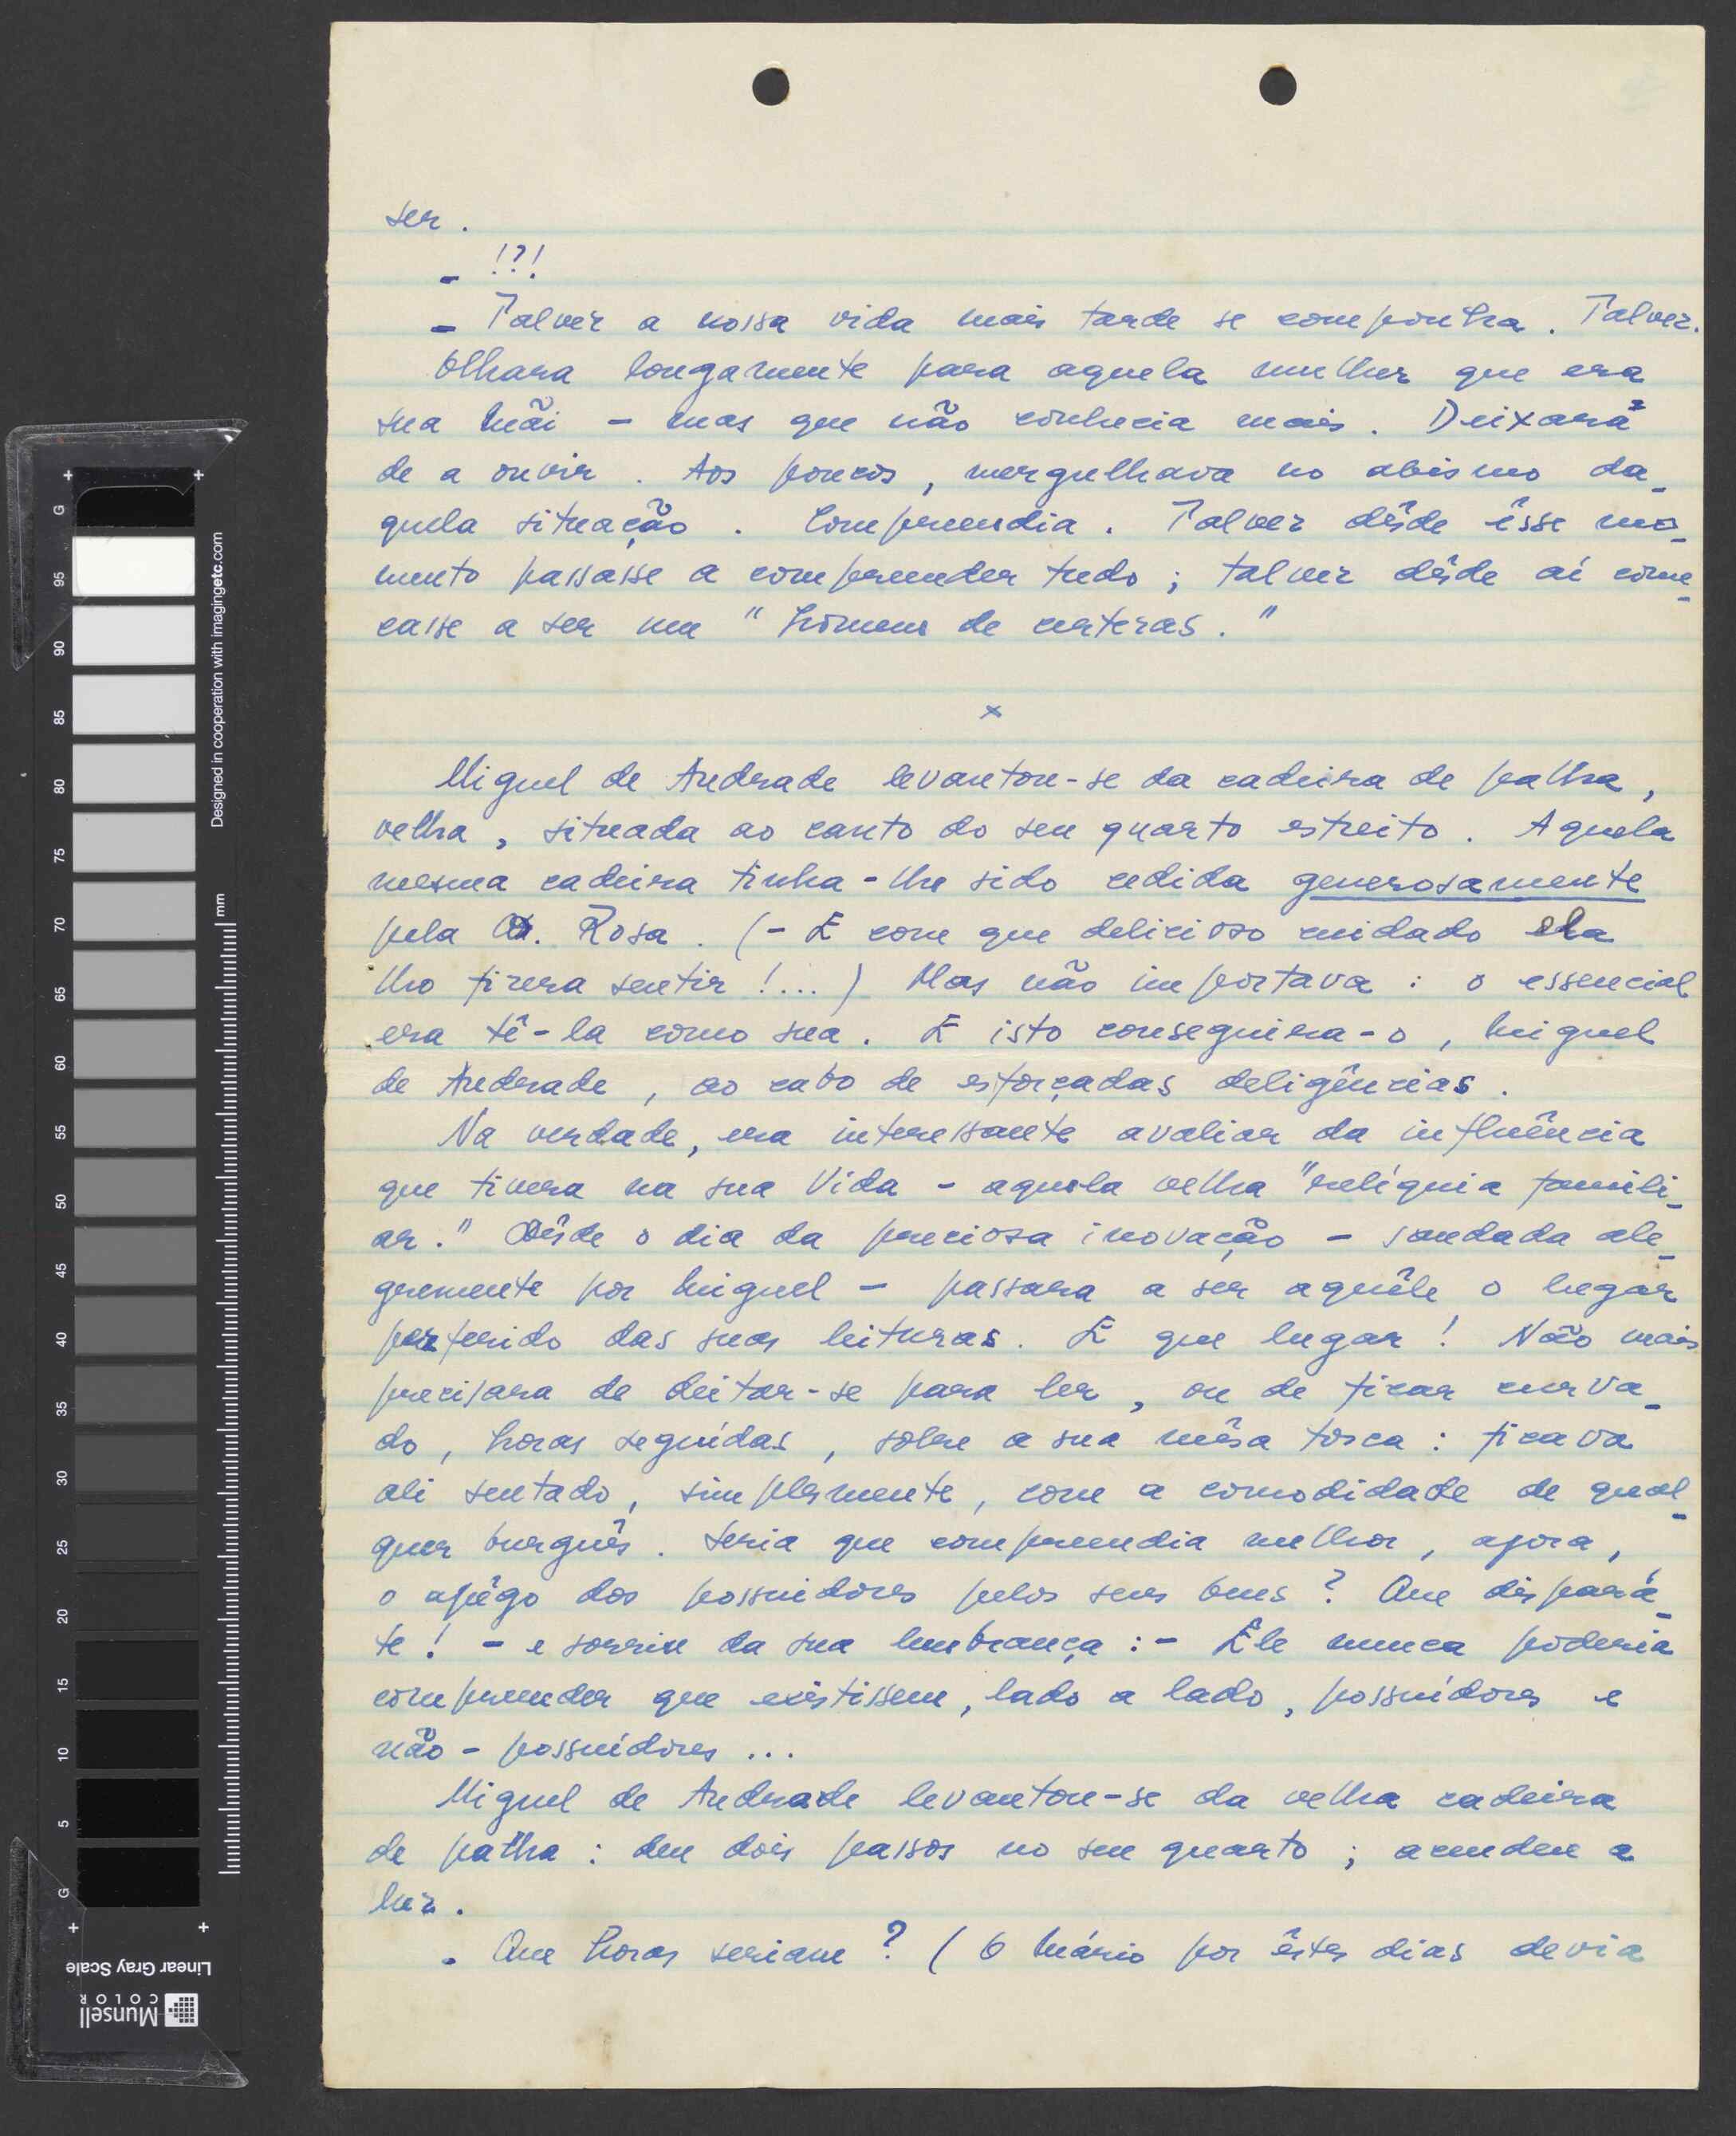 ser.
- !?!
- Talvez a nossa vida mais tarde se componha. Talvez.
Olhara longamente para aquela mulher que era
sua mãi - mas que não conhecia mais. Deixara
de a ouvir. Aos poucos, mergulhava no abismo da-
quela situação. Compreendia. Talvez dêsde êsse mo-
mento passasse a compreender tudo; talvez dêsde aí come-
casse a ser um "homem de certezas."
x
Miguel de Andrade levantou-se da cadeira de palha,
velha, situada ao canto do seu quarto estreito. Aquela
mesma cadeira tinha-lhe sido cedida generosamente
pela D. Rosa. (- E com que delicioso cuidado ela
lho fizera sentir!...) Mas não importava: o essencial
era tê-la como sua. E isto conseguira-o, Miguel
de Andrade, ao cabo de esforçadas deligências.
Na verdade, era interessante avaliar da influência
que tivera na sua Vida - aquela velha "relíquia famili-
ar." Dêsde o dia da preciosa inovação - saudada ale-
gremente por Miguel - passara a ser aquêle o lugar
preferido das suas leituras. E que lugar! Não mais
precisara de deitar-se para ler, ou de ficar curva-
do, horas seguídas, sobre a sua mêsa tosca: ficava
ali sentado, simplesmente, com a comodidade de qual-
quer burguês. Seria que compreendia melhor, agora,
o apêgo dos possuidores pelos seus bens? Que dispará-
te! - e sorriu da sua lembrança: - Êle nunca poderia
compreender que existissem, lado a lado, possuídores e
não-possuídores...
Miguel de Andrade levantou-se da velha cadeira
de palha: deu dois passos no seu quarto; acendeu a
luz.
- Que horas seriam? (O Mário por êstes dias devia
G 95 90 85 80 75 70 65 60 55 50 45 40 35 30 25 20 15 10 5 G
Designed in cooperation with imagingetc.com
mm
Linear Gray Scale
Munsell
COLOR